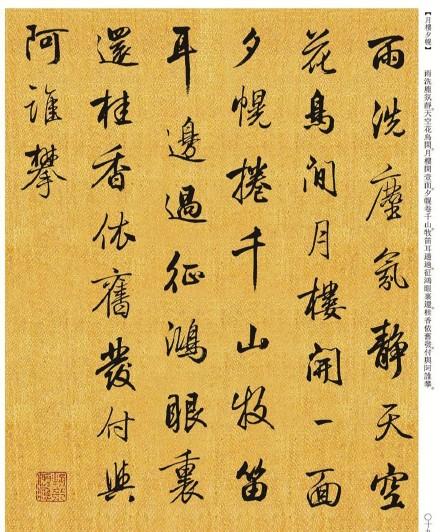 【月樓夕幌】 雨洗塵氛靜。天空花鳥閒。月樓開壹面。夕幌卷千山。牧笛耳邊過。征鴻眼裏還。桂香依舊發。付與阿誰攀。
雨洗塵氛靜天空
花鳥閒月樓開一面
夕幌捲千山牧笛
耳邊過征鴻眼裏
還桂香依舊發付與
阿誰攀